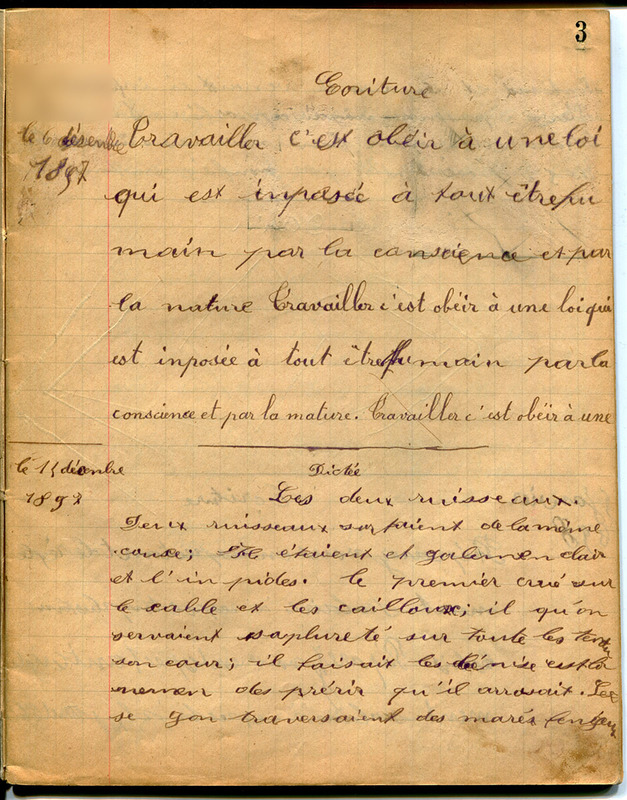 3
Ecriture
le 6 désenbre
1897
Travailler c'est obéir à une loi
qui est inposée à tout être hu
main par la consciene et par
la nature Travailler c'est obéir à une loi qui
est inposée à tout être humain par la
conscience et par la mature. Travailler c'est obéir à une
le 15 décenbre
1897
Dictée
Les deux ruisseaux.
Deux ruisseaux sortaient de la même
couse; Il étaient et galemen clair
et l'in pides. le premier crué sur
le sable et les cailloux; il qu'on
servaient sa plureté sur toute les
son cour; il faisait les
nemen des prérir qu'il arrosait. Le
se gon traversaient des marés